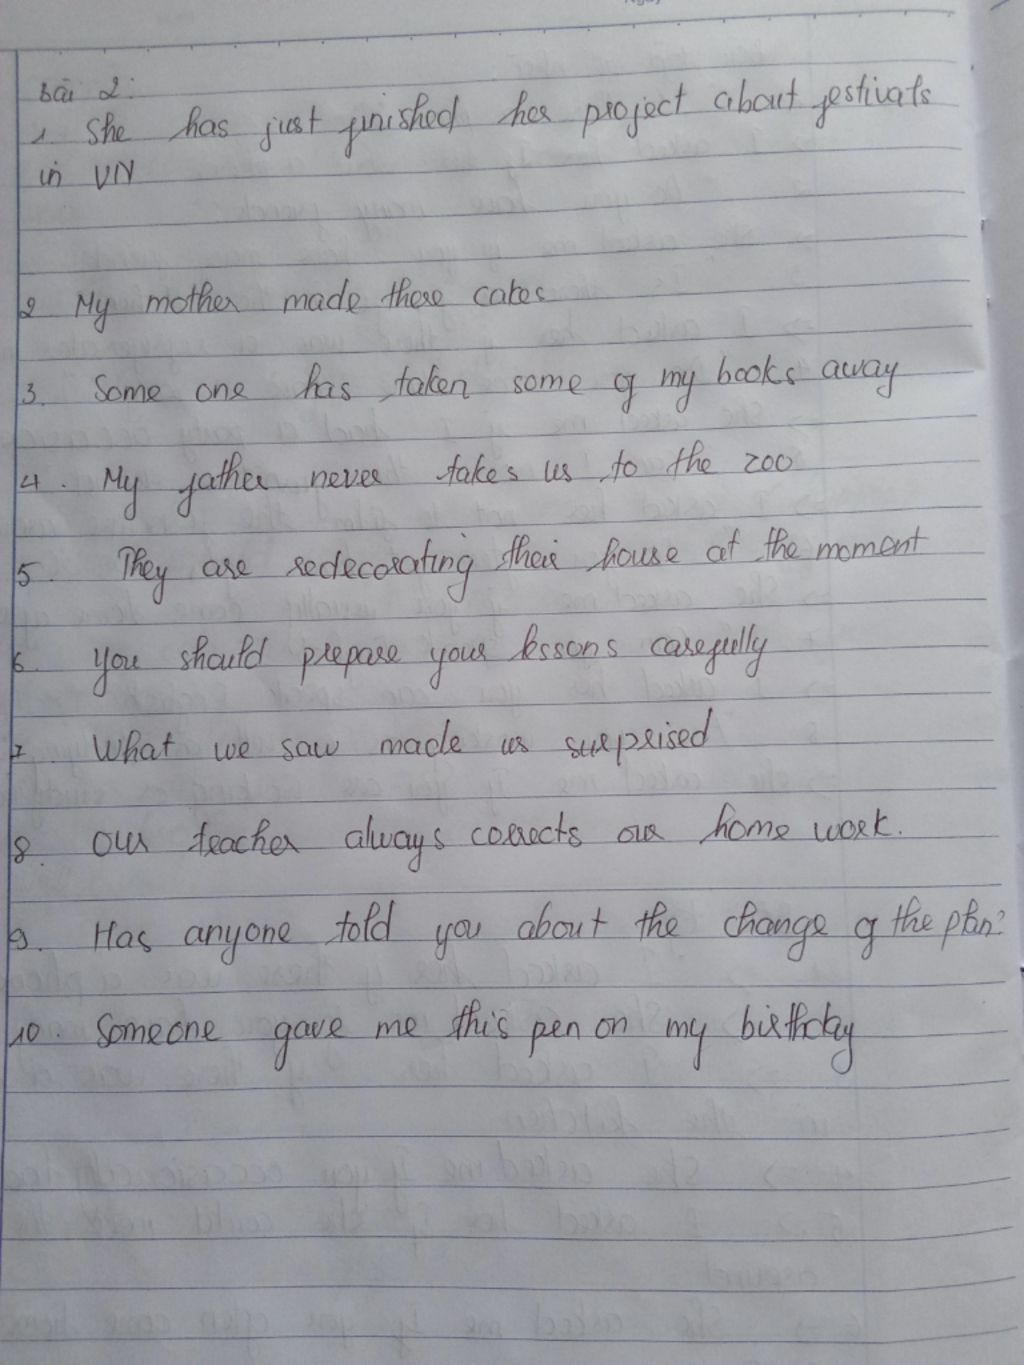 Bài 2:
1. She has just finished her project about festivals
in VN
2 My mother made these cakes
3. Some one has taken some of my books away
4. My father never takes us to the zoo
5. They are redecorating their house at the moment
6. you should prepare your lessons carefully
7. What we saw made us surprised
8. Our teacher always corrects our home work.
9. Has anyone told you about the change of the plan?
10. Someone gave me this pen on my birthday